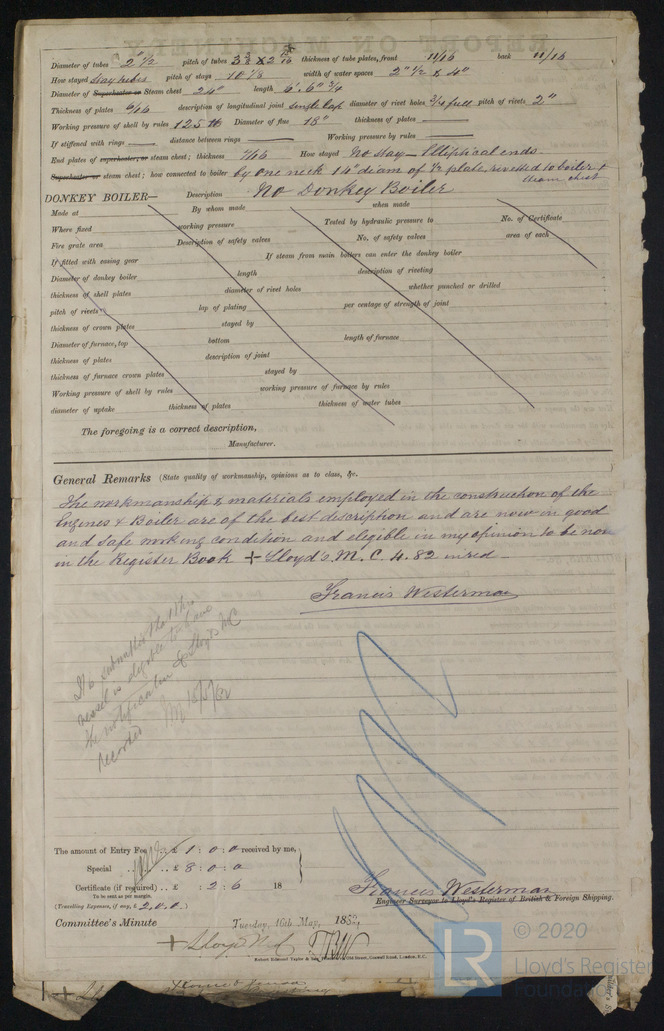 Diameter of tubes 2" 1/2 pitch of tubes 3 3/8 X 2 thickness of tube plates, front 11/16 back 11/16
How stayed stay tubes pitch of stays 10 1/8 width of water spaces 2" 1/2 x 4"
Diameter of Superheater or Steam chest 24" length 6' . 6" 3/4
Thickness of plates 6/16 description of longitudinal joint single lap diameter of rivet holes 3/4 full pitch of rivets 2"
Working pressure of shell by rules 125 lb Diameter of flue 18" thickness of plates
If stiffened with rings distance between rings Working pressure by rules
End plates of superheater, or steam chest; thickness 7/16 How stayed No stay - Elliptical ends
Superheater or steam chest; how connected to boiler by one neck 14" diam of 1/2 plate, rivetted to boiler &
steam chest
DONKEY BOILER— Description No Donkey Boiler
Made at By whom made when made
Where fixed working pressure Tested by hydraulic pressure to No. of Certificate
Fire grate area Description of safety valves No. of safety valves area of each
If fitted with easing gear If steam from main boilers can enter the donkey boiler
Diameter of donkey boiler length description of riveting
thickness of shell plates diameter of rivet holes whether punched or drilled
pitch of rivets lap of plating per centage of strength of joint
thickness of crown plates stayed by
Diameter of furnace, top bottom length of furnace
thickness of plates description of joint
thickness of furnace crown plates stayed by
Working pressure of shell by rules working pressure of furnace by rules
diameter of uptake thickness of plates thickness of water tubes
The foregoing is a correct description,
Manufacturer.
General Remarks (State quality of workmanship, opinions as to class, &c.
The workmanship & materials employed in the construction of the
Engines & Boiler are of the best description and are now in good
and safe working condition and eligible in my opinion to be now
in the Register Book + Lloyd's M. C. 4. 82 in red
Francis Westerman
It is submitted that this
vessel is eligible to have
the notification + Lloyd's MC
recorded
The amount of Entry Fee .. £ 1 : 0 : 0 received by me,
Special .. £ 8 : 0 : 0
Certificate (if required) .. £ : 2 : 6 18
To be sent as per margin.
(Travelling Expenses, if any, £ 2. 0. 0.)
Francis Westerman
Engineer Surveyor to Lloyd's Register of British & Foreign Shipping.
Committee's Minute Tuesday, 16th May, 1882.
+ Lloyd's M C
Robert Edmund Taylor & Son, Printers, Old Street, Goswell Road, London, E.C.
LR © 2020
Lloyd's Register
Foundation